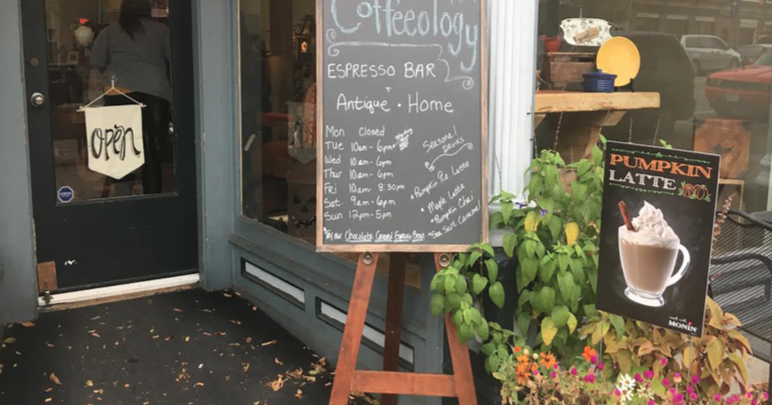 Coffeeology
ESPRESSO BAR
+
Antique · Home
Mon Closed
Tue 10am-6pm
Wed 10am-6pm
Thr 10am-6pm
Fri 10am-8:30pm
Sat 9am-6pm
Sun 12pm-5pm
Seasonal Drinks
*Pumpkin Pie Latte
*Maple Latte
*Pumpkin Chai
*Sea Salt Caramel
Chocolate Covered Espresso Beans
open
PUMPKIN
LATTE
MONIN